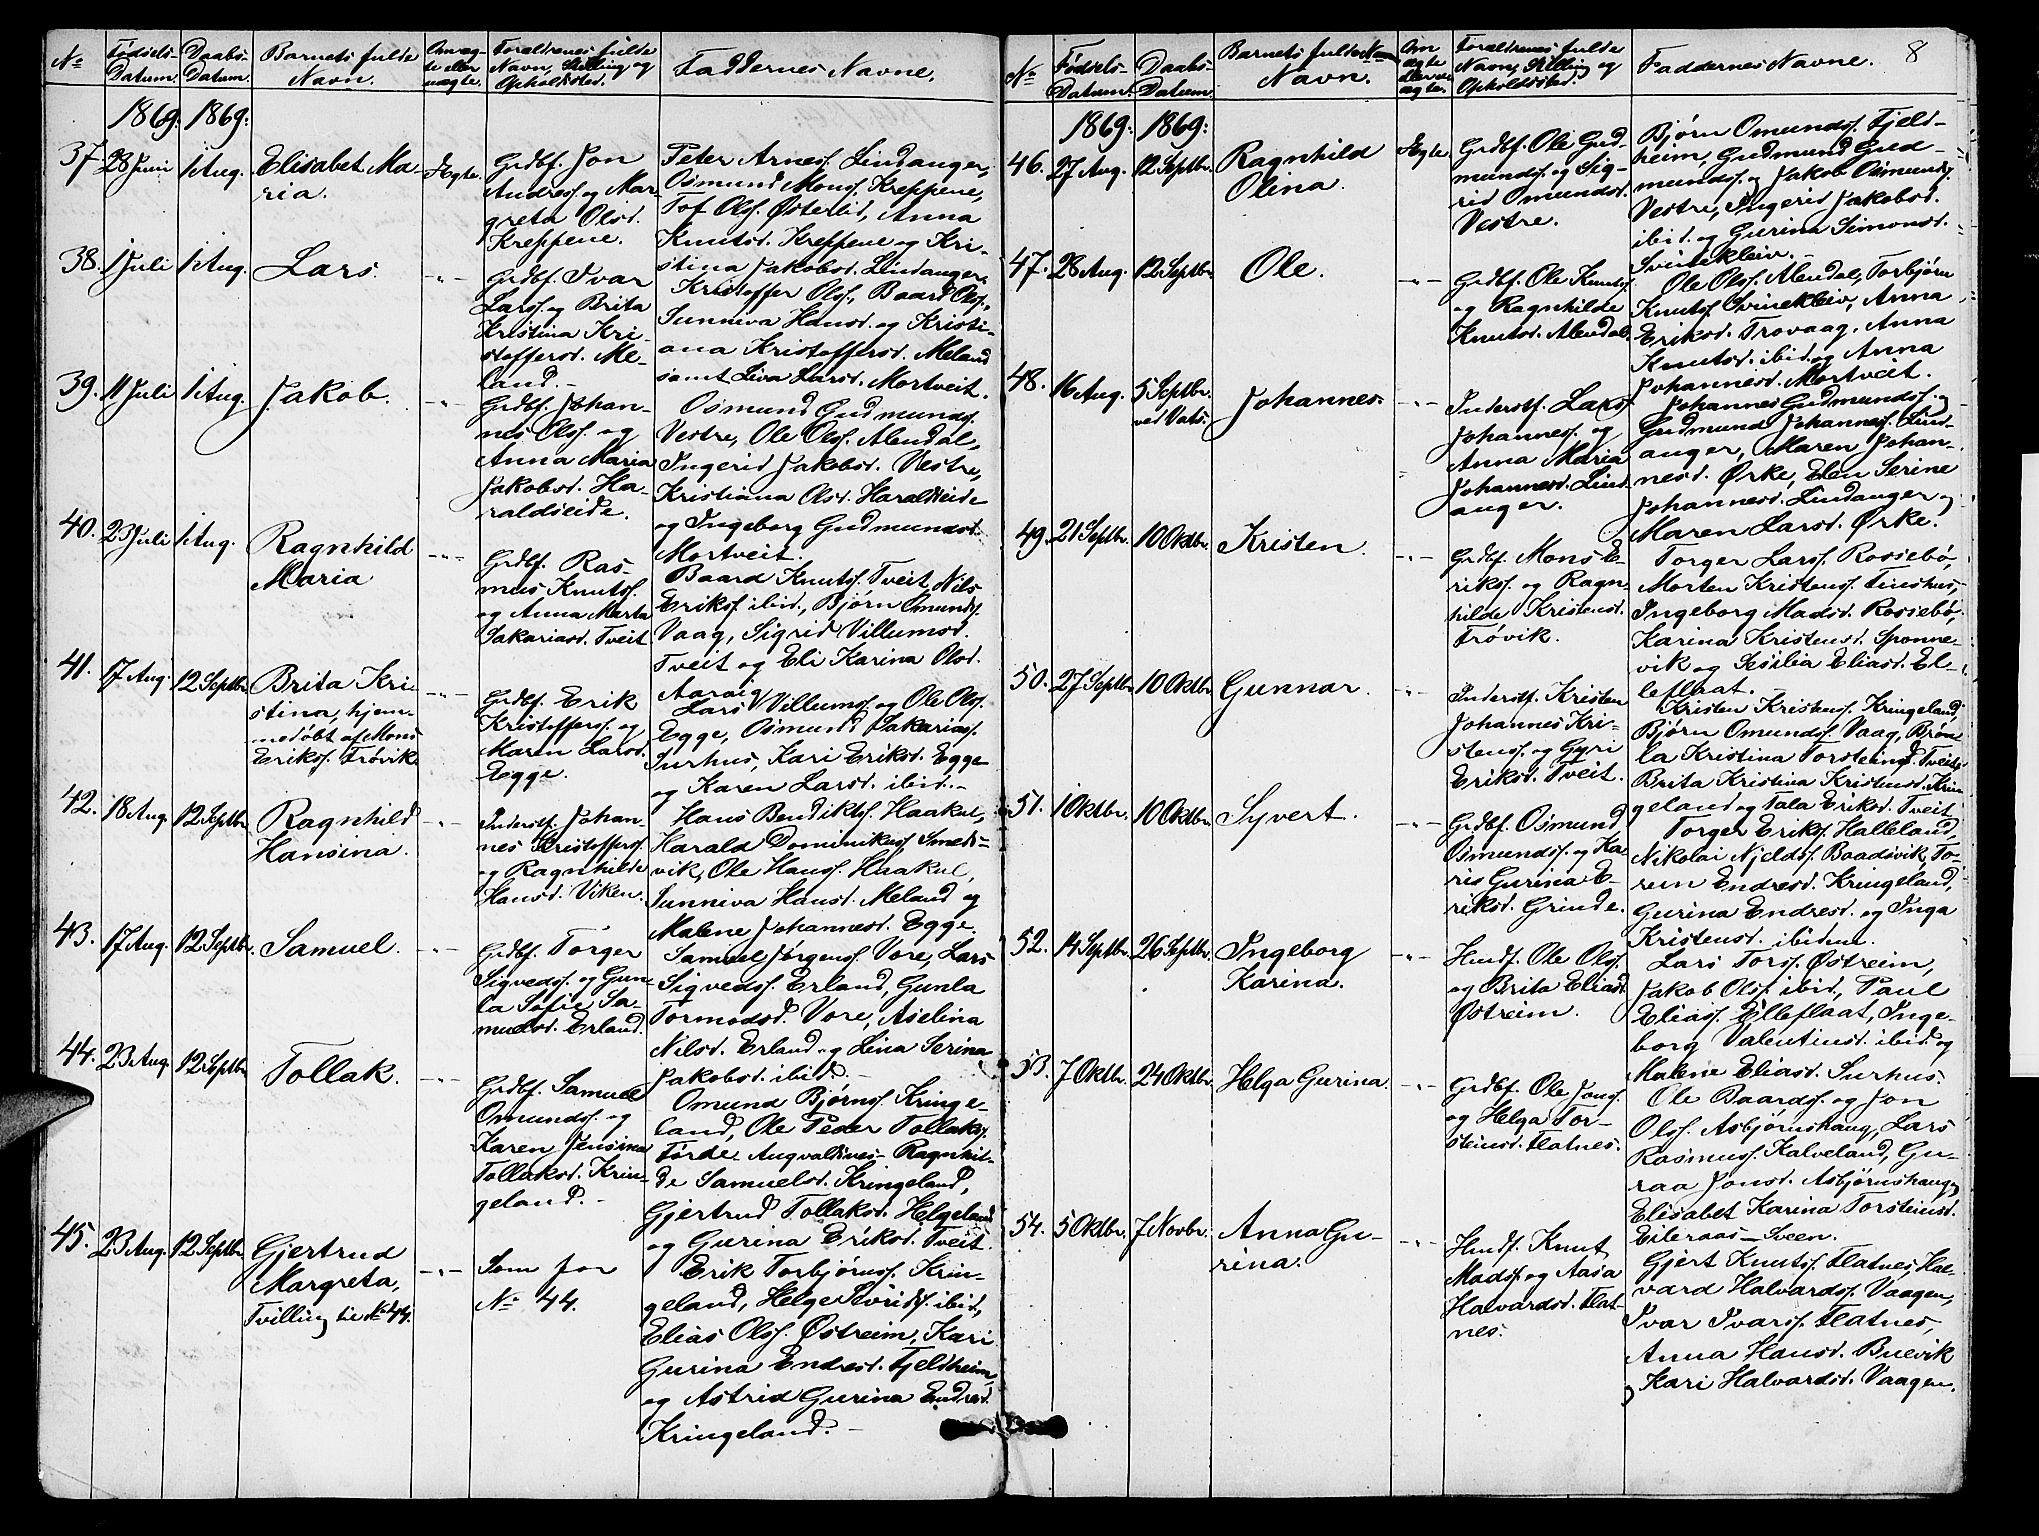 No
Fødsels-
Datum.
Daabs-
Datum.
Barnets fulde
Navn.
Om æg-
te eller
uægte.
Forældrenes fulde
Navn, Stilling og
Opholdssted.
Faddernes Navne.
1869: 1869:
37. 28 Juni 1 Aug. Elisabet Ma-
ria.
Ægte.
Grdbf. Jon
Andress. og Mar-
greta Olsd.
Kreppene.
Peter Arness. Lindanger,
Osmund Monss. Kreppene,
Tof Olss. Østerlid, Anna
Knutsd. Kreppene og Kri-
stina Jakobsd. Lindanger.
38. 1 Juli 1 Aug. Lars.
-"-
Grdbf. Ivar
Larss. og Brita
Kristina Kri-
stoffersd. Me-
land.-
Kristoffer Olss., Baard Olss.,
Sunniva Hansd. og Kristi-
ana Kristoffersd. Meland
samt Liva Larsd. Mortveit.
39. 11 Juli 1 Aug. Jakob.
-"-
Grdbf. Johan-
nes Olss. og
Anna Maria
Jakobsd. Ha-
raldseide.
Osmund Gudmunds.
Vestre, Ole Olss. Alendal,
Ingerid Jakobsd. Vestre,
Kristiana Olsd. Haraldseide
og Ingeborg Gudmundsd.
Mortveit.
40. 23 Juli 1 Aug. Ragnhild
Maria
-"-
Grdbf. Ras-
mus Knutss.
og Anna Marta
Sakariasd. Tveit
Baard Knutss. Tveit, Nils
Erikss. ibid., Bjørn Omunds.
Vaag, Sigrid Villumsd.
Tveit og Eli Karina Olsd.
Aarvig
41. 17 Aug. 12 Septbr. Brita Kri-
stina, hjem-
medøbt af Mons
Erikss. Frøvik.
-"-
Grdbf. Erik
Kristofferss. og
Maren Larsd.
Egge.
Lars Villumss. og Ole Olss.
Egge, Osmund Sakarias.
Surhus, Kari Eriksd. Egge
og Karen Larsd. ibid.-
42. 18 Aug. 12 Septbr. Ragnhild
Hansina.
-"-
Inderstf. Johan-
nes Kristofferss.
og Ragnhilde
Hansd. Viken.
Hans Bendiktss. Haakul,
Harald Dominikuss. Smeds-
vik, Ole Hanss. Haakul,
Sunniva Hansd. Meland og
Malene Johannesd. Egge.
43. 17 Aug. 12 Septbr. Samuel.
-"-
Grdbf. Torger
Sigvedss. og Gun-
la Sofie Sa-
muelsd. Erland.
Samuel Jørgenss. Vore, Lars
Sigvedss. Erland, Gunla
Tormodsd. Vore, Aselina
Nilsd. Erland og Lina Serina
Jakobsd. ibid.-
44. 23 Aug. 12 Septbr. Tollak.
-"-
Grdbf. Samuel
Omundss. og
Karen Jensina
Tollaksd. Krin-
geland.-
Omund Bjørnss. Kringe-
land, Ole Peder Tollaks.
Førde Augvaldsnes Ragnhil-
de Samuelsd. Kringeland,
Gjertrud Tollaksd. Helgeland
og Gurina Eriksd. Tveit.
45. 23 Aug. 12 Septbr. Gjertrud
Margreta,
Tvilling til No 44.
-"-
Som for
No 44.
Erik Torbjørnss. Krin-
geland, Helge Sivrids. ibid,
Elias Olss. Østreim, Kari
Gurina Endresd. Fjeldheim,
og Astrid Gurina Endresd.
Kringeland.-
8
No
Fødsels-
Datum.
Daabs-
Datum.
Barnets fulde
Navn.
Om
ægte
eller u-
ægte.
Forældrenes fulde
Navn, Stilling og
Opholdssted.
Faddernes Navne.
1869: 1869:
46. 27 Aug. 12 Septbr. Ragnhild
Olina.
Ægte.
Grdbf. Ole Gud-
mundss. og Sig-
rid Omundsd.
Vestre.
Bjørn Omundss. Fjeld-
heim, Gudmund Gud-
mundss. og Jakob Osmunds.
Vestre, Ingerid Jakobsd.
ibid. og Gurina Simonsd.
Svinekleiv.-
47. 28 Aug. 12 Septbr. Ole.
-"-
Grdbf. Ole Knutss.
og Ragnhilde
Knutsd. Alendal.
Ole Olss. Alendal, Torbjørn
Knutss. Svinekleiv, Anna
Eriksd. Trovaag, Anna
Knutsd. ibid. og Anna
Johannesd. Mortveit.
48. 16 Aug. 5 Septbr.
ved Vats. Johannes.
-"-
Inderstf. Lars
Johanness. og
Anna Maria
Johannesd. Lind-
anger.
Johannes Gudmundss. og
Gudmund Johanness. Lind-
anger, Maren Johan-
nesd. Ørke, Elen Serine
Johannesd. Lindanger og
Maren Larsd. Ørke.
49. 21 Septbr. 10 Oktbr. Kristen.
-"-
Grdbf. Mons E-
rikss. og Ragn-
hilde Kristensd.
Frøvik.
Torger Larss. Rossebø,
Morten Kristenss. Tinshus,
Ingeborg Madsd. Rossebø,
Karina Kristensd. Sponne-
vik og Sesilia Eliasd. El-
leflaat.
50. 27 Septbr. 10 Oktbr. Gunnar.
-"-
Inderstf. Kristen
Johannes Kri-
stenss. og Gyri
Eriksd. Tveit.
Kristen Kristenss. Kringeland,
Bjørn Omundss. Vaag, Brøn-
la Kristina Torsteinsd. Tveit,
Brita Kristina Kristensd. Krin-
geland og Tala Eriksd. Tveit.
51. 1 Oktbr. 10 Oktbr. Syvert.
-"-
Grdbf. Osmund
Osmundss. og Ka-
ris Gurina E-
riksd. Grinde.
Torger Erikss. Halleland,
Nikolai Njeldss. Baadsvik, To-
run Endresd. Kringeland,
Gurina Endresd. og Inga
Kristensd. ibidem.
52. 14 Septbr. 26 Septbr. Ingeborg
Karina.
-"-
Husf. Ole Olss.
og Brita Eliasd.
Østreim.
Lars Torss. Østreim,
Jakob Olss. ibid., Paul
Eliass. Elleflaat, Inge-
borg Valentinsd. ibid. og
Malene Eliasd. Surhus.
53. 7 Oktbr. 24 Oktbr. Helga Gurina.
-"-
Grdbf. Ole Jonss.
og Helga Tor-
steinsd. Flatnes.
Ole Baardss. og Jon
Olss. Asbjørnshaug, Lars
Rasmuss. Kalveland, Gu-
raa Jonsd. Asbjørnshaug,
Elisabet Karina Torsteinsd.
Eileraas-Sveen.
54. 5 Oktbr. 7 Novbr. Anna Gu-
rina.
-"-
Husf. Knut
Madss. og Aasa
Halvardsd. Flat-
nes.
Gjert Knutss. Flatnes, Hal-
vard Halvardss. Vaagen,
Ivar Ivarss. Flatnes,
Anna Hansd. Buevik
og Kari Halvardsd. Vaagen.